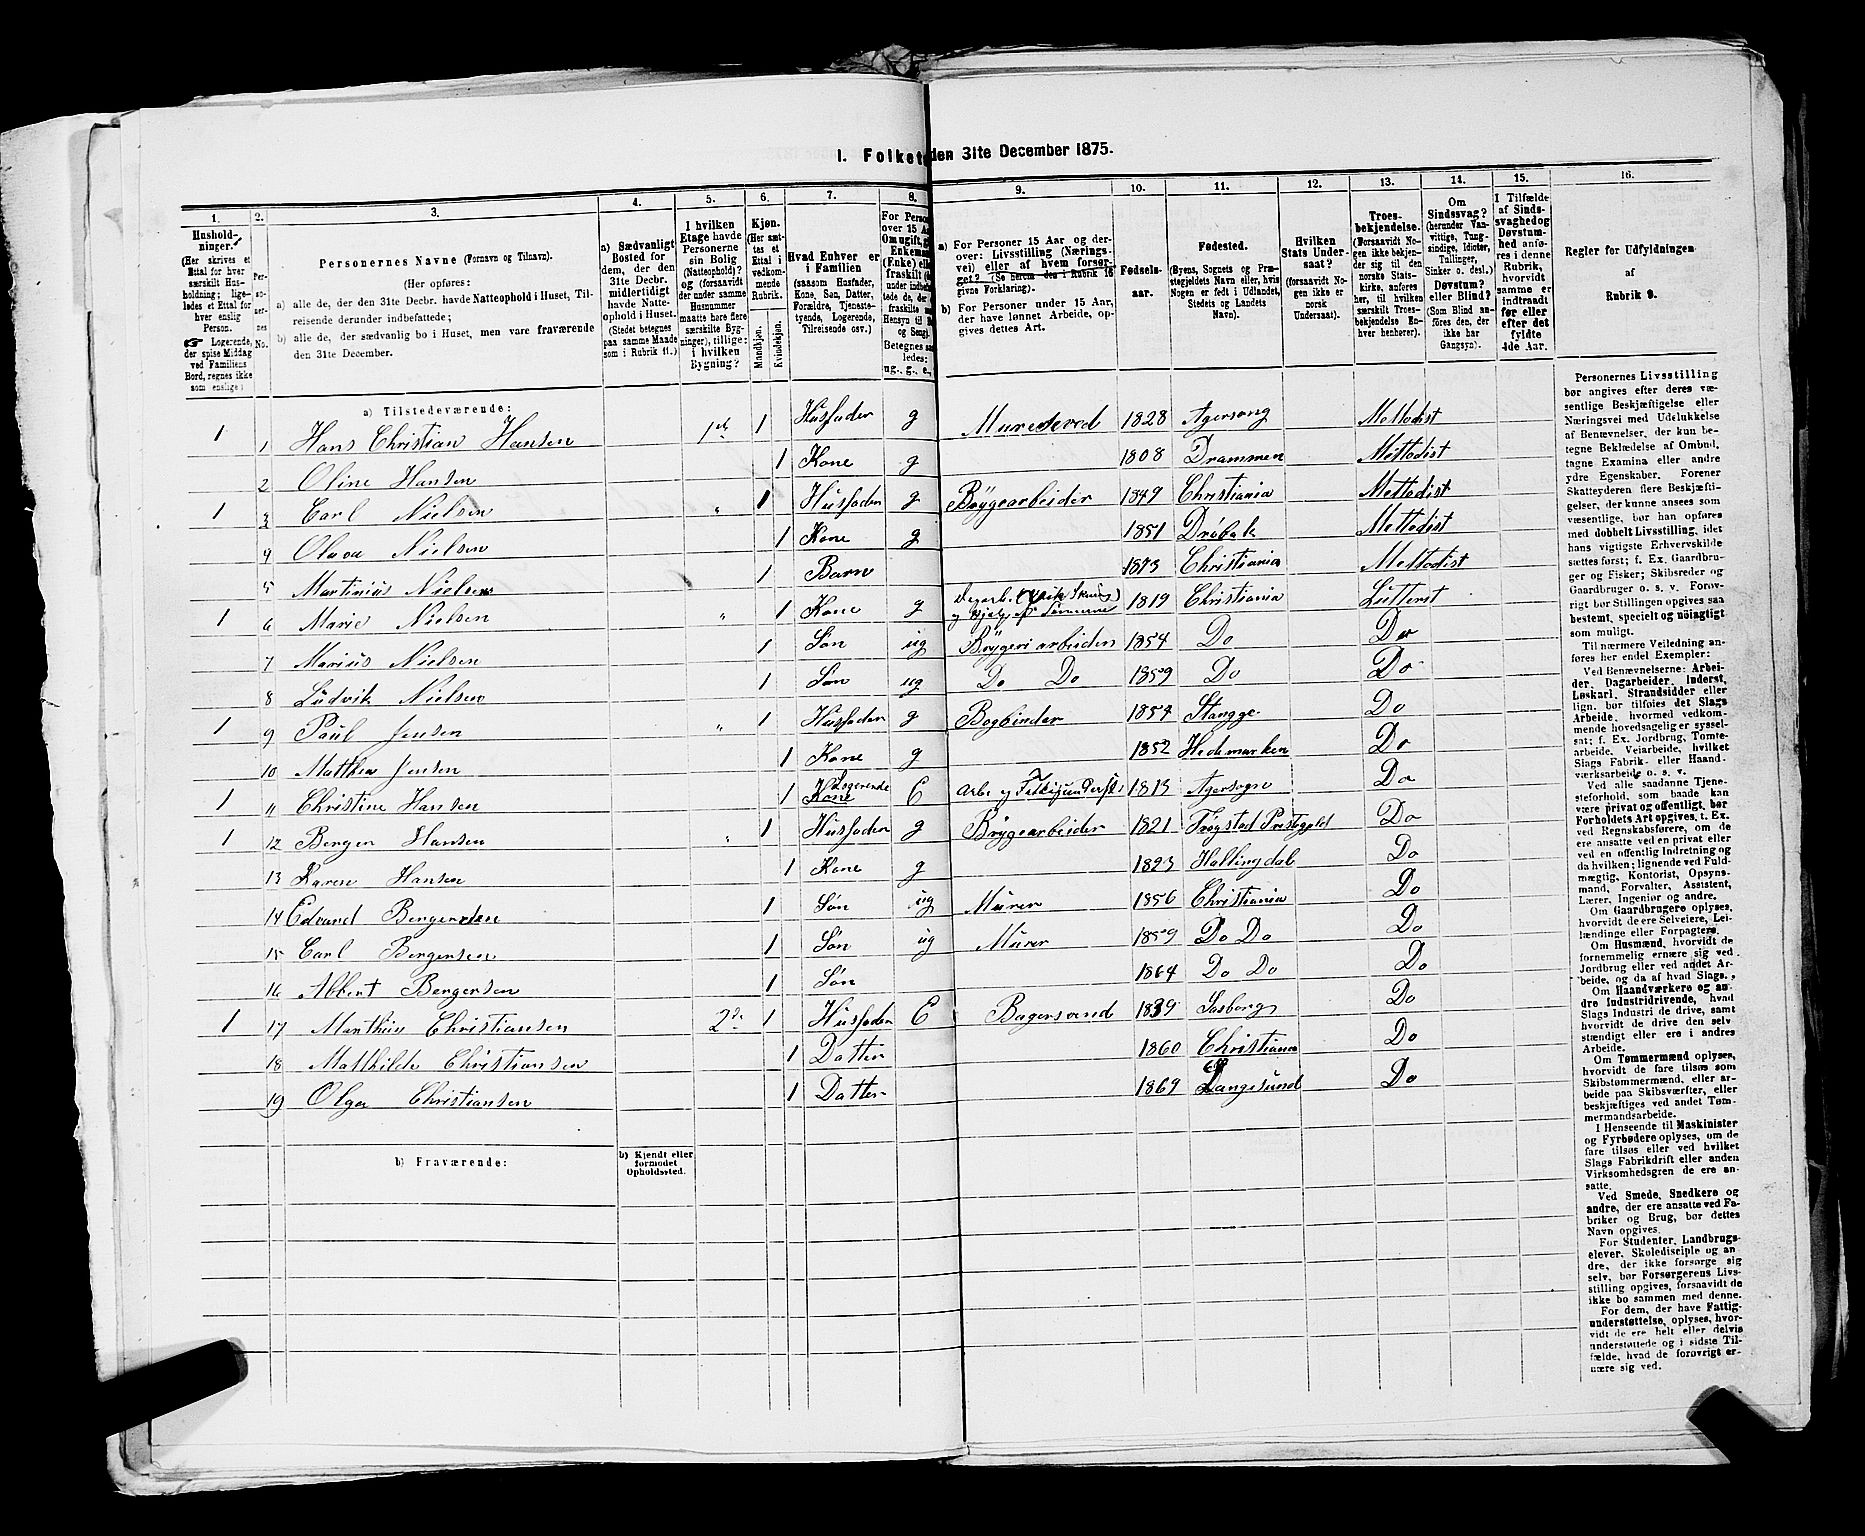 1. Folket den 31te December 1875.
1. 2. 3. 4. 5. 6. 7. 8. 9. 10. 11. 12. 13. 14. 15. 16.
Hushold-
ninger.
(Her skrives et
Ettal for hver
særskilt Hus-
holdning; lige-
ledes et Ettal for
hver enslig
Person.
☞ Logerende,
der spise Middag
ved Familiens
Bord, regnes ikke
som enslige).
Per-
so-
ner-
nes
No.
Personernes Navne (Fornavn og Tilnavn).
(Her opføres:
a) alle de, der den 31te Decbr. havde Natteophold i Huset, Til-
reisende derunder indbefattede;
b) alle de, der sædvanlig bo i Huset, men vare fraværende
den 31te December.
a) Sædvanligt
Bosted for
dem, der den
31te Decbr.
midlertidigt
havde Natte-
ophold i Huset.
(Stedet betegnes
paa samme Maade
som i Rubrik 11.)
I hvilken
Etage havde
Personerne
sin Bolig
(Natteophold)?
og (forsaavidt
der under samme
Husnummer
maatte høre flere
særskilte Byg-
ninger), tillige:
i hvilken
Bygning?
Kjøn.
(Her sæt-
tes et
Ettal i
vedkom-
mende
Rubrik.
Mandkjøn.
Kvindekjøn.
Hvad Enhver er
i Familien
(saasom Husfader,
Kone, Søn, Datter,
Forældre, Tjeneste-
tyende, Logerende,
Tilreisende osv.)
For Person
over 15 Aa
Om ugift, gi
Enkeman
(Enke) ell
fraskilt (
under indbe
tede de, de
fraskilte
Hensyn til B
og Seng
Betegnes sa
ledes:
ug., g., e.,
a) For Personer 15 Aar og der-
over: Livsstilling (Nærings-
vei) eller af hvem forsør-
get? (Se herom den i Rubrik 16
givne Forklaring).
b) For Personer under 15 Aar,
der have lønnet Arbeide, op-
gives dettes Art.
Fødsels-
aar.
Fødested.
(Byens, Sognets og Præ-
stegjeldets Navn eller, hvis
Nogen er født i Udlandet,
Stedets og Landets
Navn).
Hvilken
Stats Under-
saat?
(forsaavidt No-
gen ikke er
norsk
Undersaat).
Troes-
bekjendelse.
(Forsaavidt No-
gen ikke bekjen-
der sig til den
norske Stats-
kirke, anføres
her, til hvilken
særskilt Troes-
bekjendelse En-
hver henhører).
Om
Sindssvag?
(herunder Van-
vittige, Tung-
sindige, Idioter,
Tullinger,
Sinker o. desl.)
Døvstum?
eller Blind?
(Som Blind an-
føres den, der
ikke har
Gangsyn).
I Tilfælde
af Sinds-
svaghed og
Døvstum-
hed anfø-
res i denne
Rubrik,
hvorvidt
samme er
indtraadt
før eller
efter det
fyldte
4de Aar.
Regler for Udfyldningen
af
Rubrik 9.
a) Tilstedeværende:
1 1 Hans Christian Hansen 1st 1 Husfader g 1828 Methodist
2 Oline Hansen 1 Kone g 1808 Drammen Methodist
1 3 Carl Nielsen „ 1 Husfader g Bryggearbeider 1849 Christiania Methodist
4 Olava Nielsen 1 Kone g 1851 Drøbak Methodist
5 Martinius Nielsen 1 Barn 1873 Christiania Methodist
1 6 Marie Nielsen „ 1 Kone g 1819 Christiania Lutterst
7 Marius Nielsen 1 Søn ug Bryggeri arbeider 1854 Do Do
8 Ludvik Nielsen 1 Søn ug Do Do 1859 Do Do
1 9 Paul Jensen „ 1 Husfader g Bogbinder 1854 Stangge Do
10 Mathea Jensen 1 Kone g 1852 Hedemarken Do
1 11 Christine Hansen 1 Logerende Kone E 1813 Agersogn Do
1 12 Berger Hansen „ 1 Husfader g Bryggearbeider 1821 Trøgstad Prestegjeld Do
13 Karen Hansen 1 Kone g 1823 Hallingdal Do
14 Edvard Bergersen 1 Søn ug Murer 1856 Christiania Do
15 Carl Bergersen 1 Søn ug Murer 1859 Do Do Do
16 Albert Bergersen 1 Søn 1864 Do Do Do
1 17 Manthius Christiansen 2de 1 Husfader E Bagersvend 1839 Sasborg Do
18 Mathilde Christiansen 1 Datter 1860 Christiania Do
19 Olga Christiansen 1 Datter 1869 Langesund Do
b) Fraværende:
b) Kjendt eller
formodet
Opholdssted.
Personernes Livsstilling
bør angives efter deres væ-
sentlige Beskjæftigelse eller
Næringsvei med Udelukkelse
af Benævnelser, der kun be-
tegne Beklædelse af Ombud,
tagne Examina eller andre
ydre Egenskaber. Forener
Skatteyderen flere Beskjæfti-
gelser, der kunne ansees som
væsentlige, bør han opføres
med dobbelt Livsstilling, idet
hans vigtigste Erhvervskilde
sættes først; f. Ex. Gaardbru-
ger og Fisker; Skibsreder og
Gaardbruger o. s. v. Forøv-
rigt bør Stillingen opgives saa
bestemt, specielt og nöiagtigt
som muligt.
Til nærmere Veiledning an-
føres her endel Exempler:
Ved Benævnelserne: Arbei-
der, Dagarbeider, Inderst,
Løskarl, Strandsidder eller
lign. bør tilføies det Slags
Arbeide, hvormed vedkom-
mende hovedsagelig er syssel-
sat; f. Ex. Jordbrug, Tomte-
arbeide, Veiarbeide, hvilket
Slags Fabrik- eller Haand-
værksarbeide o. s. v.
Ved alle saadanne Tjene-
steforhold, som baade kan
være privat og offentligt, bør
Forholdets Art opgives, t. Ex.
ved Regnskabsførere, om de
ere ansatte ved en privat eller
ved en offentlig Indretning og
da hvilken; lignende ved Fuld-
mægtig, Kontorist, Opsyns-
mand, Forvalter, Assistent,
Lærer, Ingeniør og andre.
Om Gaardbrugere oplyses,
hvorvidt de ere Selveiere, Lei-
lændinge eller Forpagtere.
Om Husmænd, hvorvidt de
fornemmelig ernære sig ved
Jordbrug eller ved andet Ar-
beide, og da af hvad Slags.
Om Haandværkere og an-
dre Industridrivende, hvad
Slags Industri de drive, samt
hvorvidt de drive den selv-
stændigt eller ere i andres
Arbeide.
Om Tømmermænd oplyses,
hvorvidt de fare tilsøs som
Skibstømmermænd, eller ar-
beide paa Skibsværfter, eller
beskjæftiges ved andet Tøm-
mermandsarbeide.
I Henseende til Maskinister
og Fyrbødere oplyses, om de
fare tilsøs eller ved hvilket
Slags Fabrikdrift eller anden
Virksomhedsgren de ere an-
satte.
Ved Smede, Snedkere og
andre, der ere ansatte ved Fa-
briker og Brug, bør dettes
Navn opgives.
For Studenter, Landbrugs-
elever, Skoledisciple og an-
dre, der ikke forsørge sig
selv, bør Forsørgerens Livs-
stilling opgives, forsaavidt de
ikke bo sammen med denne.
For dem, der have Fattig-
understøttelse, oplyses, hvor-
vidt de ere helt eller delvis
understøttede og i sidste Til-
fælde, hvad de forøvrigt er-
nære sig ved.